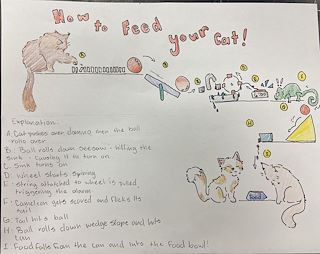 How to Feed your Cat!
Explanation:
A: Cat pushes over domino then the ball
rolls over
B: Ball rolls down seesaw: hitting the
sink - causing it to turn on
C: Sink turns on
D: Wheel starts spinning
E: String attached to wheel is pulled
triggering the alarm
F: Cameleon gets scared and flicks its
tail
G: Tail hits ball
H: Ball rolls down wedge slope and hits
can
I: Food falls from the can and into the food bowl!